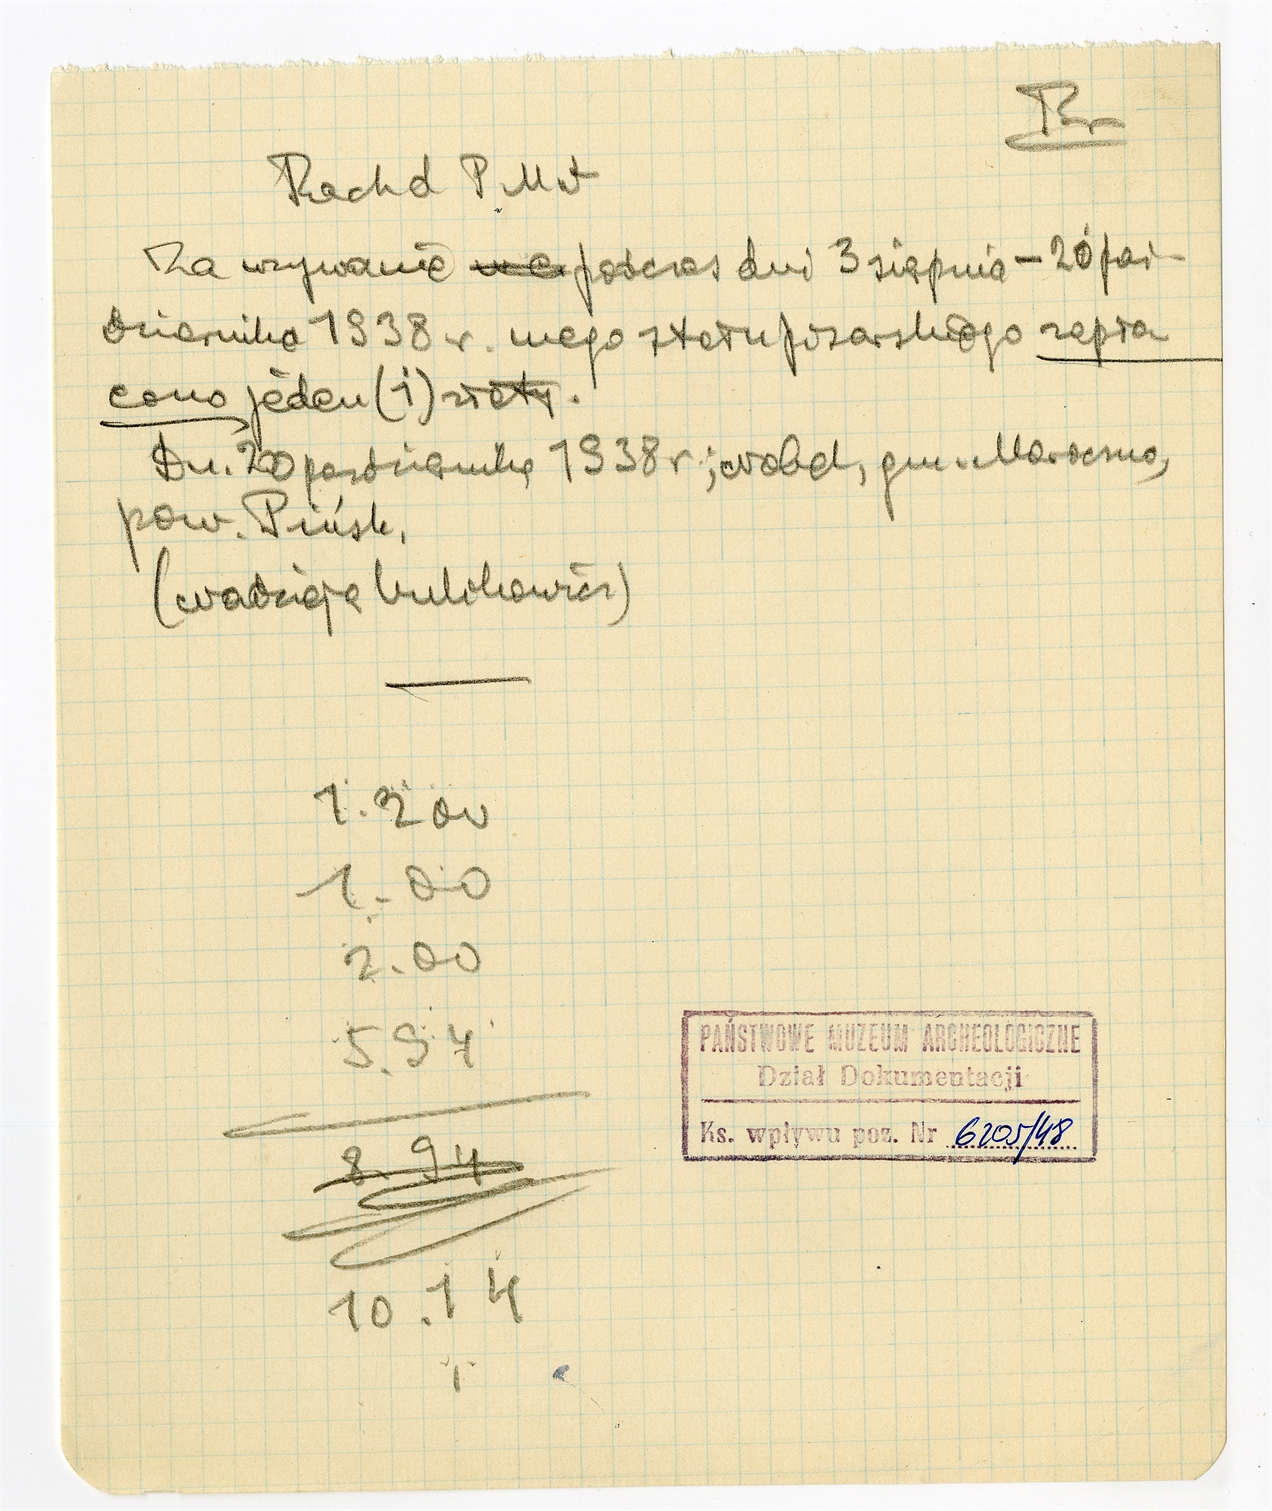 Rachd P. M A
Za używanie podczas dni 3 sierpnia – 20 paź-
dziernika 1938 r. mego stołu pisarskiego zapła
cono jeden (1) złoty.
Dn. 20 października 1938 r.; gm. Moroczno,
pow. Pińsk,
1.200
1.00
2.00
5.94
8.94
10.14
PAŃSTWOWE MUZEUM ARCHEOLOGICZNE
Dział Dokumentacji
Ks. wpływu poz. Nr 6205/48